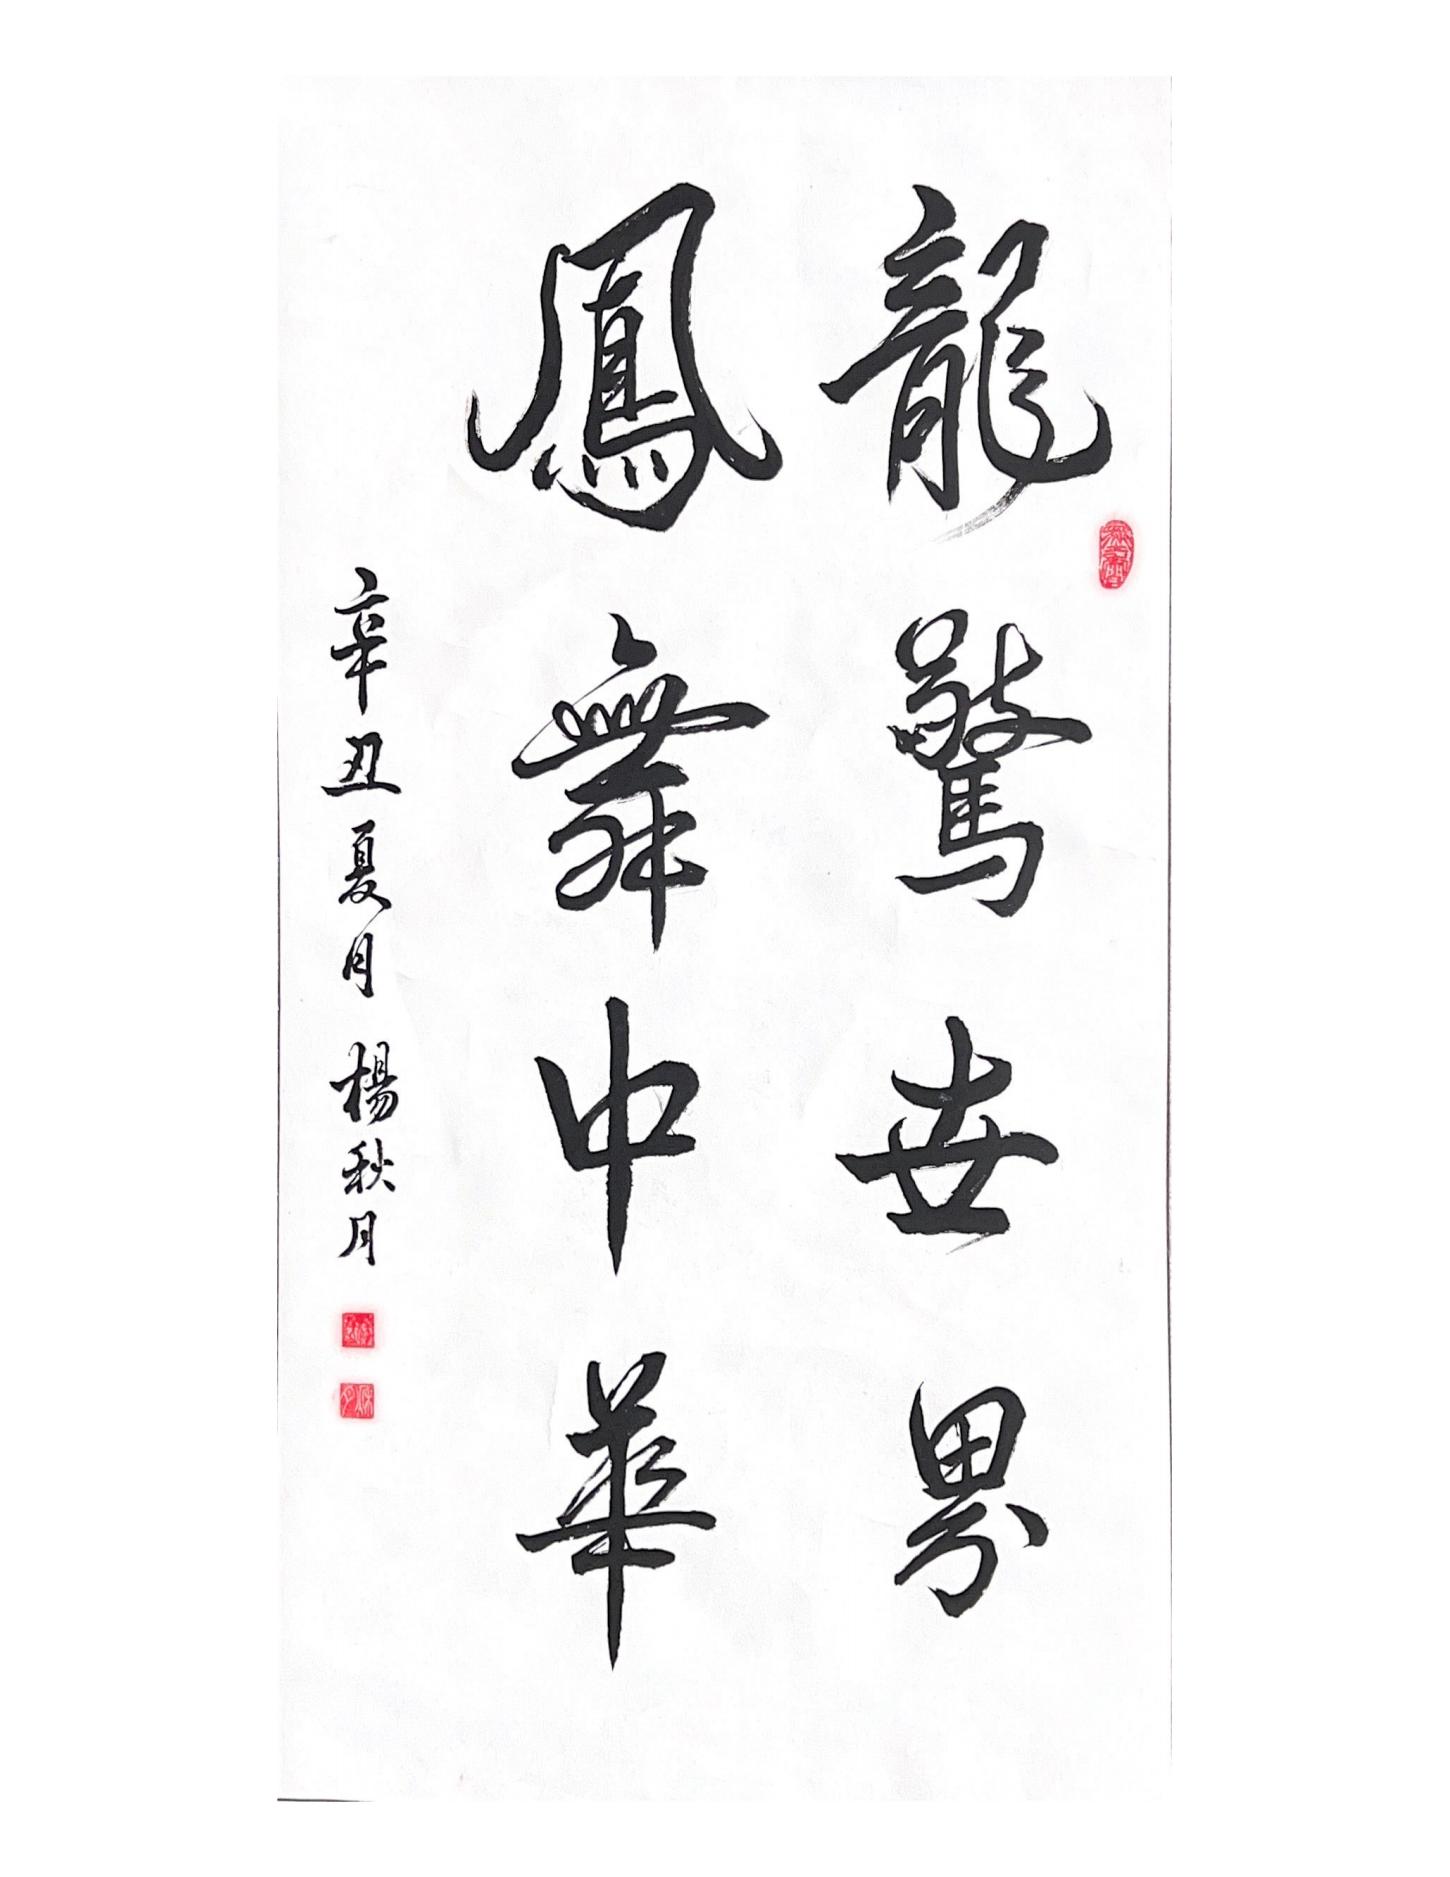 龍驚世界
鳳舞中華
辛丑夏月 楊秋月